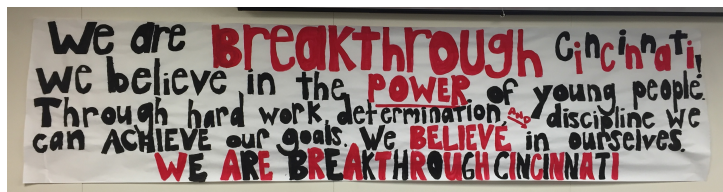 We are Breakthrough Cincinnati,
we believe in the POWER of young people.
Through hard work, determination, and discipline we
can ACHIEVE our goals. We BELIEVE in ourselves.
WE ARE BREAKTHROUGH CINCINNATI